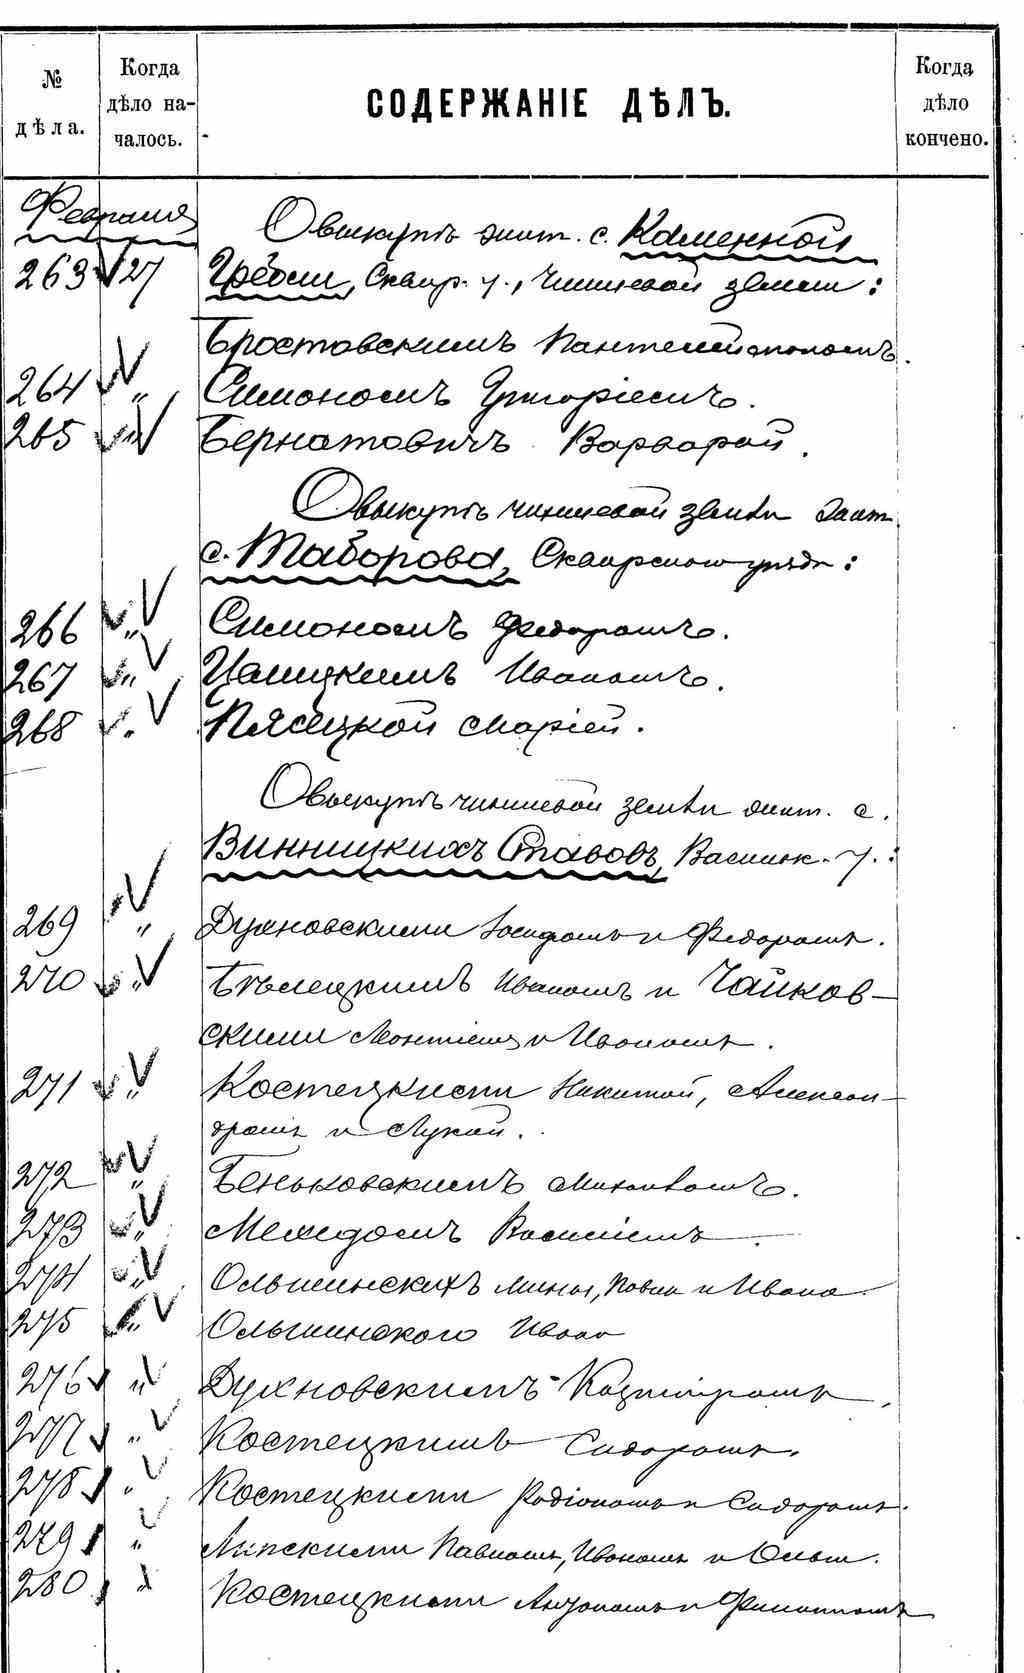 № дѣла.
Когда дѣло на-чалось.
СОДЕРЖАНІЕ ДѢЛЪ.
Когда дѣло кончено.
Февраля
О выкупѣ жит. с. Каменной
263 27 Гребли, Сквир. у., чиншевой земли:
Бростовскимъ Пантелеймономъ.
264 „ Симономъ Григоріемъ.
265 „ Бернатовичъ Варварой.
О выкупѣ чиншевой земли жит.
с. Таборова, Сквирскаго уѣзда:
266 „ Симономъ Федоромъ.
267 „ Иваномъ.
268 „ Пясецкой Маріей.
О выкупѣ чиншевой земли жит. с.
Винницкихъ Ставовъ, Васильк. у.:
269 „ Духновскими Іосифомъ и Федоромъ.
270 „ Бѣлецкимъ Иваномъ и Чайков-
скими и Иваномъ.
271 „ Костецкими Никитой, Алексан-
дромъ и Лукой.
272 „ Беньковскимъ Михаиломъ.
273 „ Василіемъ.
274 „ Ольшинскихъ Павла и Ивана.
275 „ Ольшинского Ивана
276 „ Духновскимъ Казиміромъ.
277 „ Костецкимъ Сидоромъ.
278 „ Костецкими Родіономъ и Сидоромъ.
279 „ Липскими Павломъ, Иваномъ и
280 „ Костецкими Антономъ и Филиппомъ